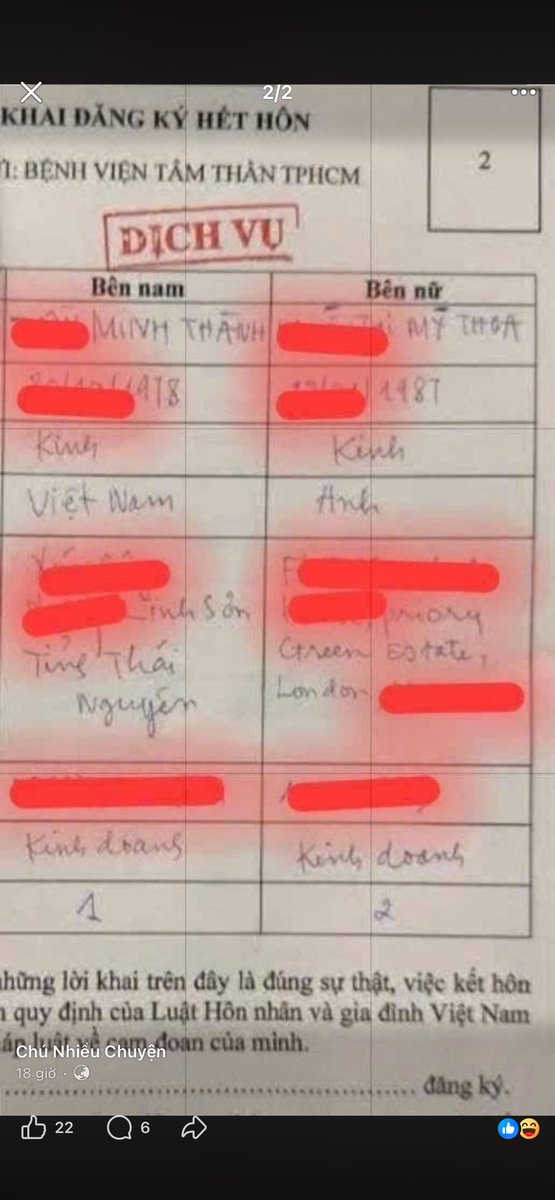 2/2
KHAI ĐĂNG KÝ KẾT HÔN
2
BỆNH VIỆN TÂM THẦN TPHCM
DỊCH VỤ
Bên nam
Bên nữ
MINH THÀNH
MỸ THOA
1978
1987
Kinh
Kinh
Việt Nam
Anh
Linh Sơn
Tỉnh Thái
Nguyên
priory
Green Estate,
London
Kinh doanh
Kinh doanh
1
2
những lời khai trên đây là đúng sự thật, việc kết hôn
quy định của Luật Hôn nhân và gia đình Việt Nam
cam đoan của mình.
Chú Nhiều Chuyện
18 giờ
đăng ký.
22
6